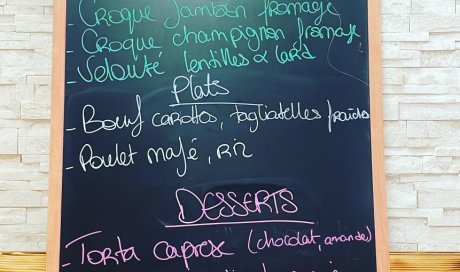 - Croque Jambon fromage
- Croque champignon fromage
- Velouté lentilles & lard
Plats
- Boeuf carottes, tagliatelles fraîches
- Poulet mafé, Riz
DESSERTS
- Torta caprese (chocolat, amandes)